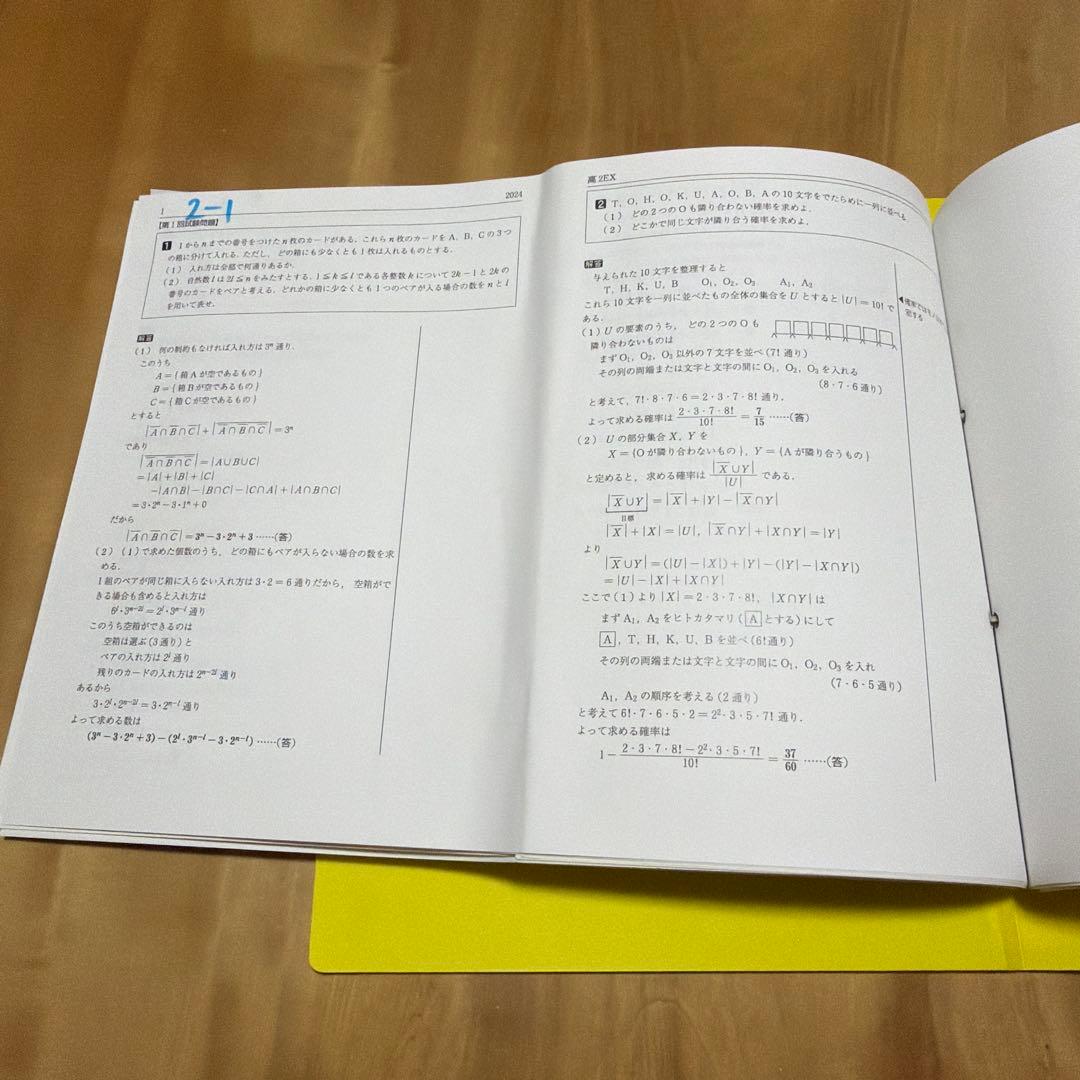 1
2-1
2024
【第1回試験問題】
1 1からnまでの番号をつけたn枚のカードがある.これらn枚のカードをA,B,Cの3つ
の箱に分けて入れる.ただし,どの箱にも少なくとも1枚は入れるものとする.
(1) 入れ方は全部で何通りあるか.
(2) 自然数lは2l≦nをみたすとする.1≦k≦lである各整数kについて2k−1と2kの
番号のカードをペアと考える.どれかの箱に少なくとも1つのペアが入る場合の数をnとl
を用いて表せ.
解答
(1) 何の制約もなければ入れ方は3ⁿ通り.
このうち
A={箱Aが空であるもの}
B={箱Bが空であるもの}
C={箱Cが空であるもの}
とすると
|A̅∩B̅∩C̅|+|\overline{A̅∩B̅∩C̅}|=3ⁿ
であり
|\overline{A̅∩B̅∩C̅}|=|A∪B∪C|
=|A|+|B|+|C|
−|A∩B|−|B∩C|−|C∩A|+|A∩B∩C|
=3・2ⁿ−3・1ⁿ+0
だから
|A̅∩B̅∩C̅|=3ⁿ−3・2ⁿ+3 ……(答)
(2) (1)で求めた個数のうち,どの箱にもペアが入らない場合の数を求
める.
1組のペアが同じ箱に入らない入れ方は3・2=6通りだから,空箱がで
きる場合も含めると入れ方は
6^l・3^{n−2l}=2^l・3^{n−l}通り
このうち空箱ができるのは
空箱は選ぶ(3通り)と
ペアの入れ方は2^l通り
残りのカードの入れ方は2^{n−2l}通り
あるから
3・2^l・2^{n−2l}=3・2^{n−l}通り
よって求める数は
(3ⁿ−3・2ⁿ+3)−(2^l・3^{n−l}−3・2^{n−l}) ……(答)
高2EX
2 T,O,H,O,K,U,A,O,B,Aの10文字をでたらめに一列に並べる.
(1) どの2つのOも隣り合わない確率を求めよ.
(2) どこかで同じ文字が隣り合う確率を求めよ.
解答
与えられた10文字を整理すると
T,H,K,U,B O₁,O₂,O₃ A₁,A₂
これら10文字を一列に並べたもの全体の集合をUとすると|U|=10!で
ある.
(1) Uの要素のうち,どの2つのOも
隣り合わないものは
まずO₁,O₂,O₃以外の7文字を並べ(7!通り)
その列の両端または文字と文字の間にO₁,O₂,O₃を入れる
(8・7・6通り)
と考えて,7!・8・7・6=2・3・7・8!通り.
よって求める確率は \frac{2・3・7・8!}{10!}=\frac{7}{15} ……(答)
(2) Uの部分集合X,Yを
X={Oが隣り合わないもの},Y={Aが隣り合うもの}
と定めると,求める確率は \frac{|X̅∪Y|}{|U|} である.
|X̅∪Y|=|X̅|+|Y|−|X̅∩Y|
目標
|X̅|+|X|=|U|,|X̅∩Y|+|X∩Y|=|Y|
より
|X̅∪Y|=(|U|−|X|)+|Y|−(|Y|−|X∩Y|)
=|U|−|X|+|X∩Y|
ここで(1)より|X|=2・3・7・8!,|X∩Y|は
まずA₁,A₂をヒトカタマリ(Aとする)にして
A,T,H,K,U,Bを並べ(6!通り)
その列の両端または文字と文字の間にO₁,O₂,O₃を入れ
(7・6・5通り)
A₁,A₂の順序を考える(2通り)
と考えて6!・7・6・5・2=2²・3・5・7!通り.
よって求める確率は
1−\frac{2・3・7・8!−2²・3・5・7!}{10!}=\frac{37}{60} ……(答)
◀確率では
別する